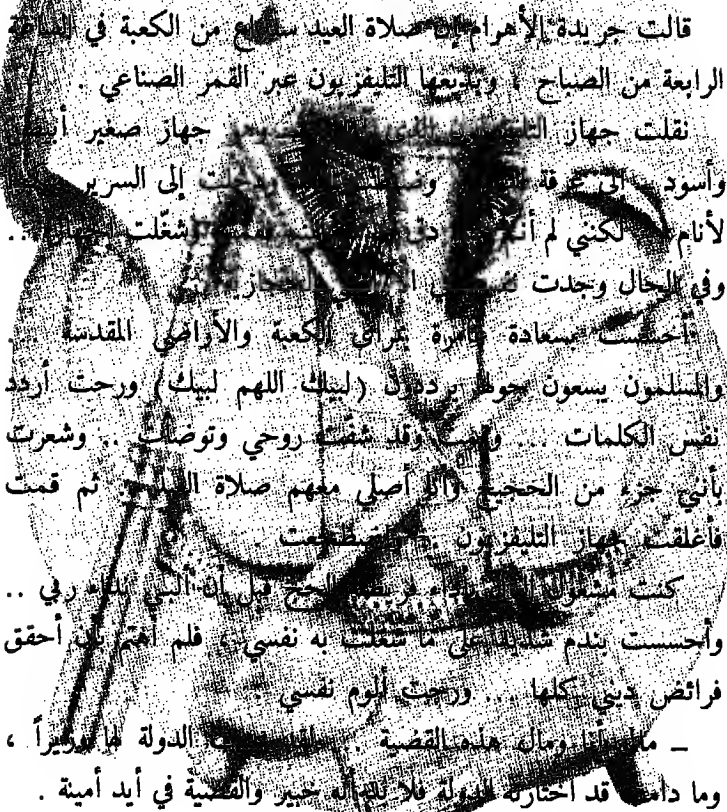 قالت جريدة الأهرام إن صلاة العيد ستذاع من الكعبة في الساعة
الرابعة من الصباح ، وتذيعها التليفزيون عبر القمر الصناعي .
نقلت جهاز وهو جهاز صغير أبيض
وأسود .. الى غرفة ودخلت إلى السرير
لأنام .. لكنني لم أنم .. وشغّلت الجهاز ..
وفي الحال وجدت نفسي في الأراضي الحجازية
أحسست بسعادة غامرة لمرأى الكعبة والأراضي المقدسة ...
والمسلمون يسعون حولها يرددون (لبيك اللهم لبيك) ورحت أردد
نفس الكلمات ... وقمت وقد شفّت روحي وتوضأت .. وشعرت
بأنني جزء من الحجيج وأنا أصلي معهم صلاة العيد .. ثم قمت
فأغلقت جهاز التليفزيون .. واضطجعت .
كنت مشغولا بأداء فريضة الحج قبل أن ألبي نداء ربي ..
وأحسست بندم شديد على ما شغلت به نفسي ، فلم أهتم بأن أحقق
فرائض ديني كلها ... ورحت ألوم نفسي .
ــ مالي أنا ومال هذه القضية .. الدولة لها وزيراً ،
وما دامت قد اختارته الدولة فلا بد أنه خبير والقضية في أيد أمينة .